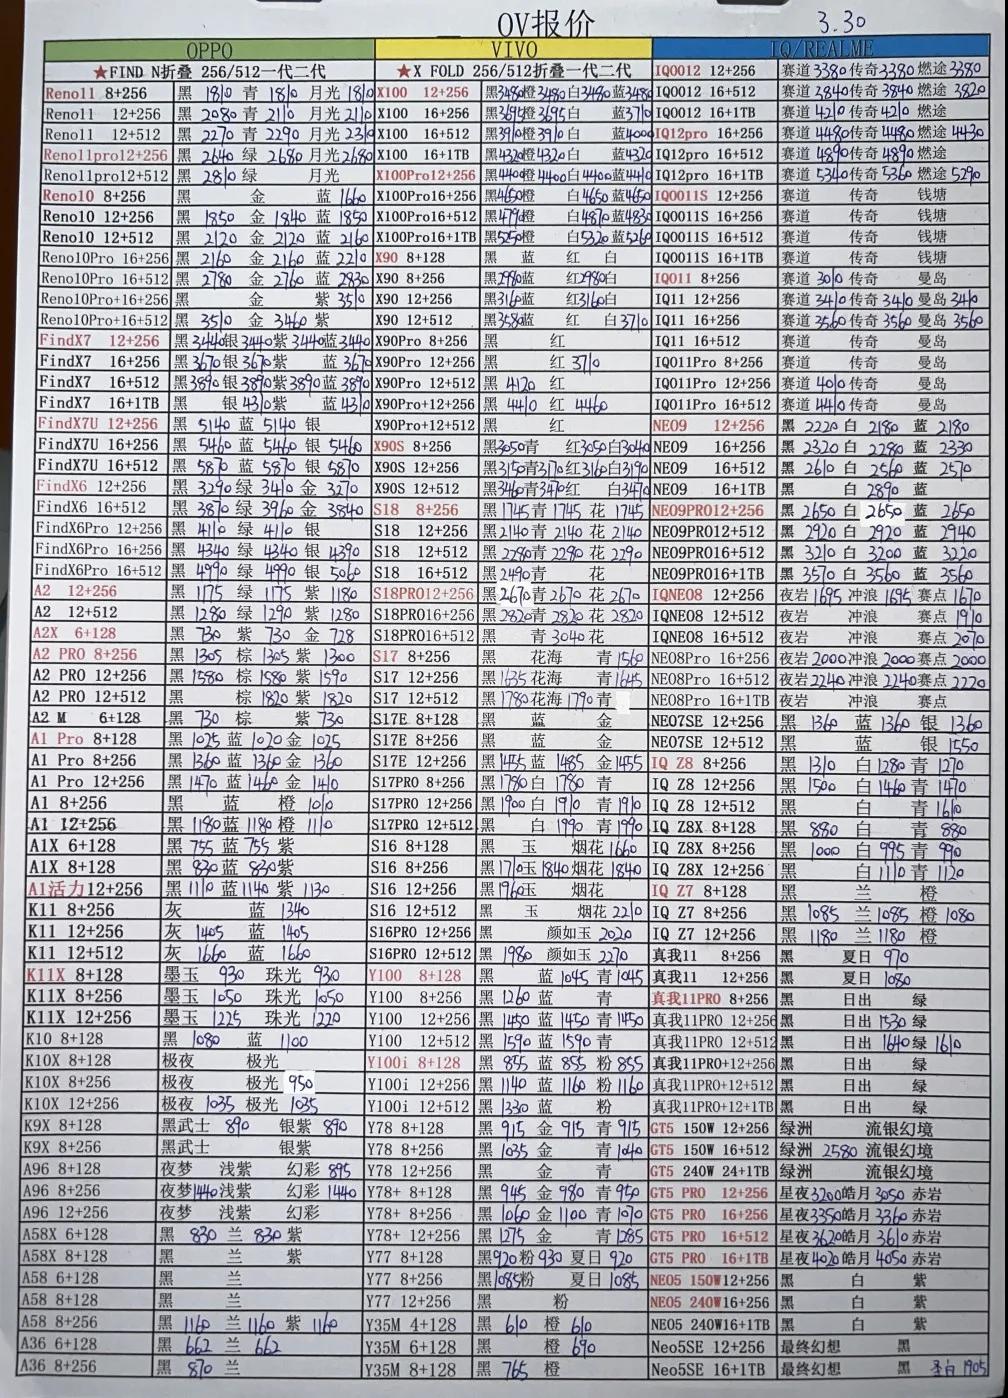 OV报价 3.30
OPPO VIVO IQ/REALME
★FIND N折叠 256/512一代二代 ★X FOLD 256/512折叠一代二代 IQOO12 12+256 赛道 3380 传奇 3380 燃途 3380
Reno11 8+256 黑 1810 青 1810 月光 1810 X100 12+256 黑3480橙3480白3480蓝3480 IQOO12 16+512 赛道 3840 传奇 3840 燃途 3820
Reno11 12+256 黑 2080 青 2110 月光 2110 X100 16+256 黑3695橙3695白 蓝3710 IQOO12 16+1TB 赛道 4210 传奇 4210 燃途
Reno11 12+512 黑 2270 青 2290 月光 2310 X100 16+512 黑3910橙3910白 蓝4000 IQ12pro 16+256 赛道 4480 传奇 4480 燃途 4430
Reno11pro12+256 黑 2640 绿 2680 月光 2680 X100 16+1TB 黑4320橙4320白 蓝4320 IQ12pro 16+512 赛道 4890 传奇 4890 燃途
Reno11pro12+512 黑 2810 绿 月光 X100Pro12+256 黑4400橙4400白4400蓝4410 IQ12pro 16+1TB 赛道 5340 传奇 5360 燃途 5290
Reno10 8+256 黑 金 蓝 1660 X100Pro16+256 黑4650橙 白4650蓝4650 IQOO11S 12+256 赛道 传奇 钱塘
Reno10 12+256 黑 1850 金 1840 蓝 1850 X100Pro16+512 黑4790橙 白4870蓝4830 IQOO11S 16+256 赛道 传奇 钱塘
Reno10 12+512 黑 2120 金 2120 蓝 2160 X100Pro16+1TB 黑5250橙 白5320蓝5260 IQOO11S 16+512 赛道 传奇 钱塘
Reno10Pro 16+256 黑 2160 金 2160 蓝 2210 X90 8+128 黑 蓝 红 白 IQOO11S 16+1TB 赛道 传奇 钱塘
Reno10Pro 16+512 黑 2780 金 2760 蓝 2830 X90 8+256 黑2980蓝 红2980白 IQO11 8+256 赛道 3010 传奇 曼岛
Reno10Pro+16+256 黑 金 紫 3510 X90 12+256 黑3160蓝 红3160白 IQ11 12+256 赛道 3410 传奇 3410 曼岛 3410
Reno10Pro+16+512 黑 3510 金 3460 紫 X90 12+512 黑3580蓝 红 白3710 IQ11 16+256 赛道 3560 传奇 3560 曼岛 3560
FindX7 12+256 黑3440银3440紫3440蓝3440 X90Pro 8+256 黑 红 IQ11 16+512 赛道 传奇 曼岛
FindX7 16+256 黑3670银3670紫 蓝3670 X90Pro 12+256 黑 红 3710 IQO11Pro 8+256 赛道 传奇 曼岛
FindX7 16+512 黑3890银3890紫3890蓝3890 X90Pro 12+512 黑 4120 红 IQO11Pro 12+256 赛道 4010 传奇 曼岛
FindX7 16+1TB 黑 银4310紫 蓝4310 X90Pro+12+256 黑 4410 红 4460 IQO11Pro 16+512 赛道 4410 传奇 曼岛
FindX7U 12+256 黑 5140 蓝 5140 银 X90Pro+12+512 黑 红 NEO9 12+256 黑 2220 白 2180 蓝 2180
FindX7U 16+256 黑 5460 蓝 5460 银 5460 X90S 8+256 黑3050青 红3050白3040 NEO9 16+256 黑 2320 白 2280 蓝 2330
FindX7U 16+512 黑 5870 蓝 5870 银 5870 X90S 12+256 黑3150青3170红3160白3190 NEO9 16+512 黑 2610 白 2560 蓝 2570
FindX6 12+256 黑 3290 绿 3410 金 3270 X90S 12+512 黑3460青3470红 白3470 NEO9 16+1TB 黑 白 2890 蓝
FindX6 16+512 黑 3870 绿 3960 金 3840 S18 8+256 黑 1745 青 1745 花 1745 NEO9PRO12+256 黑 2650 白 2650 蓝 2650
FindX6Pro 12+256 黑 4110 绿 4110 银 S18 12+256 黑 2140 青 2140 花 2140 NEO9PRO12+512 黑 2920 白 2920 蓝 2940
FindX6Pro 16+256 黑 4340 绿 4340 银 4390 S18 12+512 黑 2280 青 2280 花 2290 NEO9PRO16+512 黑 3210 白 3200 蓝 3220
FindX6Pro 16+512 黑 4990 绿 4990 银 5060 S18 16+512 黑 2490 青 花 NEO9PRO16+1TB 黑 3570 白 3560 蓝 3560
A2 12+256 黑 1175 绿 1175 紫 1180 S18PRO12+256 黑 2670 青 2670 花 2670 IQNEO8 12+256 夜岩 1695 冲浪 1695 赛点 1670
A2 12+512 黑 1280 绿 1290 紫 1280 S18PRO16+256 黑 2820 青 2820 花 2820 IQNEO8 12+512 夜岩 冲浪 赛点 1910
A2X 6+128 黑 730 紫 730 金 728 S18PRO16+512 黑 青 3040 花 IQNEO8 16+512 夜岩 冲浪 赛点 2070
A2 PRO 8+256 黑 1305 棕 1305 紫 1300 S17 8+256 黑 花海 青 1560 NEO8Pro 16+256 夜岩 2000 冲浪 2000 赛点 2000
A2 PRO 12+256 黑 1580 棕 1580 紫 1590 S17 12+256 黑 1635 花海 青 1645 NEO8Pro 16+512 夜岩 2240 冲浪 2240 赛点 2220
A2 PRO 12+512 黑 棕 1820 紫 1820 S17 12+512 黑 1780 花海 1790 青 NEO8Pro 16+1TB 夜岩 冲浪 赛点
A2 M 6+128 黑 730 棕 紫 730 S17E 8+128 黑 蓝 金 NEO7SE 12+256 黑 1360 蓝 1360 银 1360
A1 Pro 8+128 黑 1025 蓝 1020 金 1025 S17E 8+256 黑 蓝 金 NEO7SE 12+512 黑 蓝 银 1550
A1 Pro 8+256 黑 1360 蓝 1360 金 1360 S17E 12+256 黑 1455 蓝 1485 金 1455 IQ Z8 8+256 黑 1310 白 1280 青 1270
A1 Pro 12+256 黑 1470 蓝 1460 金 1410 S17PRO 8+256 黑 1780 白 1780 青 IQ Z8 12+256 黑 1500 白 1460 青 1470
A1 8+256 黑 蓝 橙 1010 S17PRO 12+256 黑 1900 白 1910 青 1910 IQ Z8 12+512 黑 白 青 1610
A1 12+256 黑 1180 蓝 1180 橙 1110 S17PRO 12+512 黑 白 1990 青 1990 IQ Z8X 8+128 黑 880 白 青 880
A1X 6+128 黑 755 蓝 755 紫 S16 8+128 黑 玉 烟花 1660 IQ Z8X 8+256 黑 1000 白 995 青 990
A1X 8+128 黑 830 蓝 830 紫 S16 8+256 黑 1710 玉 1840 烟花 1840 IQ Z8X 12+256 黑 白 1110 青 1120
A1活力12+256 黑 1110 蓝 1140 紫 1130 S16 12+256 黑 1960 玉 烟花 IQ Z7 8+128 黑 兰 橙
K11 8+256 灰 蓝 1340 S16 12+512 黑 玉 烟花 2210 IQ Z7 8+256 黑 1085 兰 1085 橙 1080
K11 12+256 灰 1405 蓝 1405 S16PRO 12+256 黑 颜如玉 2020 IQ Z7 12+256 黑 1180 兰 1180 橙
K11 12+512 灰 1660 蓝 1660 S16PRO 12+512 黑 1980 颜如玉 2270 真我11 8+256 黑 夏日 970
K11X 8+128 墨玉 930 珠光 930 Y100 8+128 黑 蓝 1045 青 1045 真我11 12+256 黑 夏日 1080
K11X 8+256 墨玉 1050 珠光 1050 Y100 8+256 黑 1260 蓝 青 真我11PRO 8+256 黑 日出 绿
K11X 12+256 墨玉 1225 珠光 1220 Y100 12+256 黑 1450 蓝 1450 青 1450 真我11PRO 12+256 黑 日出 1530 绿
K10 8+128 黑 1080 蓝 1100 Y100 12+512 黑 1590 蓝 1590 青 真我11PRO 12+512 黑 日出 1640 绿 1610
K10X 8+128 极夜 极光 Y100i 8+128 黑 855 蓝 855 粉 855 真我11PRO+12+256 黑 日出 绿
K10X 8+256 极夜 极光 950 Y100i 12+256 黑 1140 蓝 1160 粉 1160 真我11PRO+12+512 黑 日出 绿
K10X 12+256 极夜 1035 极光 1035 Y100i 12+512 黑 1330 蓝 粉 真我11PRO+12+1TB 黑 日出 绿
K9X 8+128 黑武士 890 银紫 890 Y78 8+128 黑 915 金 915 青 915 GT5 150W 12+256 绿洲 流银幻境
K9X 8+256 黑武士 银紫 Y78 8+256 黑 1035 金 青 1040 GT5 150W 16+512 绿洲 2580 流银幻境
A96 8+128 夜梦 浅紫 幻彩 895 Y78 12+256 黑 金 青 GT5 240W 24+1TB 绿洲 流银幻境
A96 8+256 夜梦1440浅紫 幻彩 1440 Y78+ 8+128 黑 945 金 980 青 950 GT5 PRO 12+256 星夜3200皓月 3050 赤岩
A96 12+256 夜梦 浅紫 幻彩 Y78+ 8+256 黑 1060 金 1100 青 1070 GT5 PRO 16+256 星夜3350皓月 3360 赤岩
A58X 6+128 黑 830 兰 830 紫 Y78+ 12+256 黑 1275 金 青 1285 GT5 PRO 16+512 星夜3620皓月 3610 赤岩
A58X 8+128 黑 兰 紫 Y77 8+128 黑920粉 930 夏日 920 GT5 PRO 16+1TB 星夜4020皓月 4050 赤岩
A58 6+128 黑 兰 Y77 8+256 黑1085粉 夏日 1085 NEO5 150W12+256 黑 白 紫
A58 8+128 黑 兰 Y77 12+256 黑 粉 NEO5 240W16+256 黑 白 紫
A58 8+256 黑 1160 兰 1160 紫 1160 Y35M 4+128 黑 610 橙 610 NEO5 240W16+1TB 黑 白 紫
A36 6+128 黑 662 兰 662 Y35M 6+128 黑 橙 690 Neo5SE 12+256 最终幻想 黑
A36 8+256 黑 870 兰 Y35M 8+128 黑 765 橙 Neo5SE 16+1TB 最终幻想 黑 1905